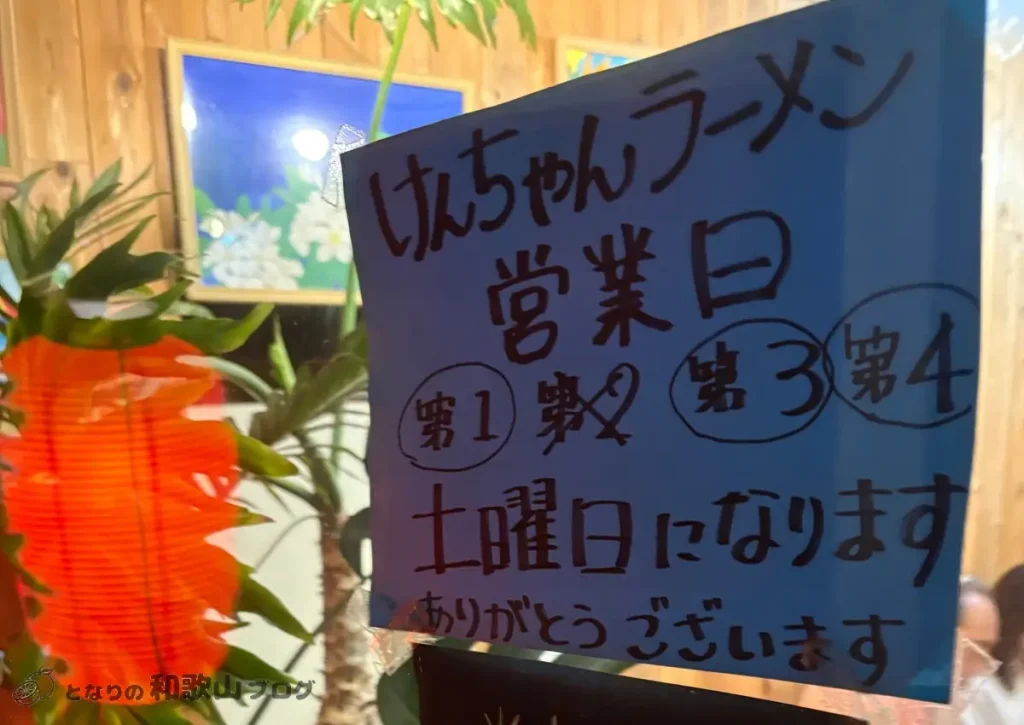 けんちゃんラーメン
営業日
第1 第2 第3 第4
土曜日になります
ありがとうございます
となりの和歌山ブログ